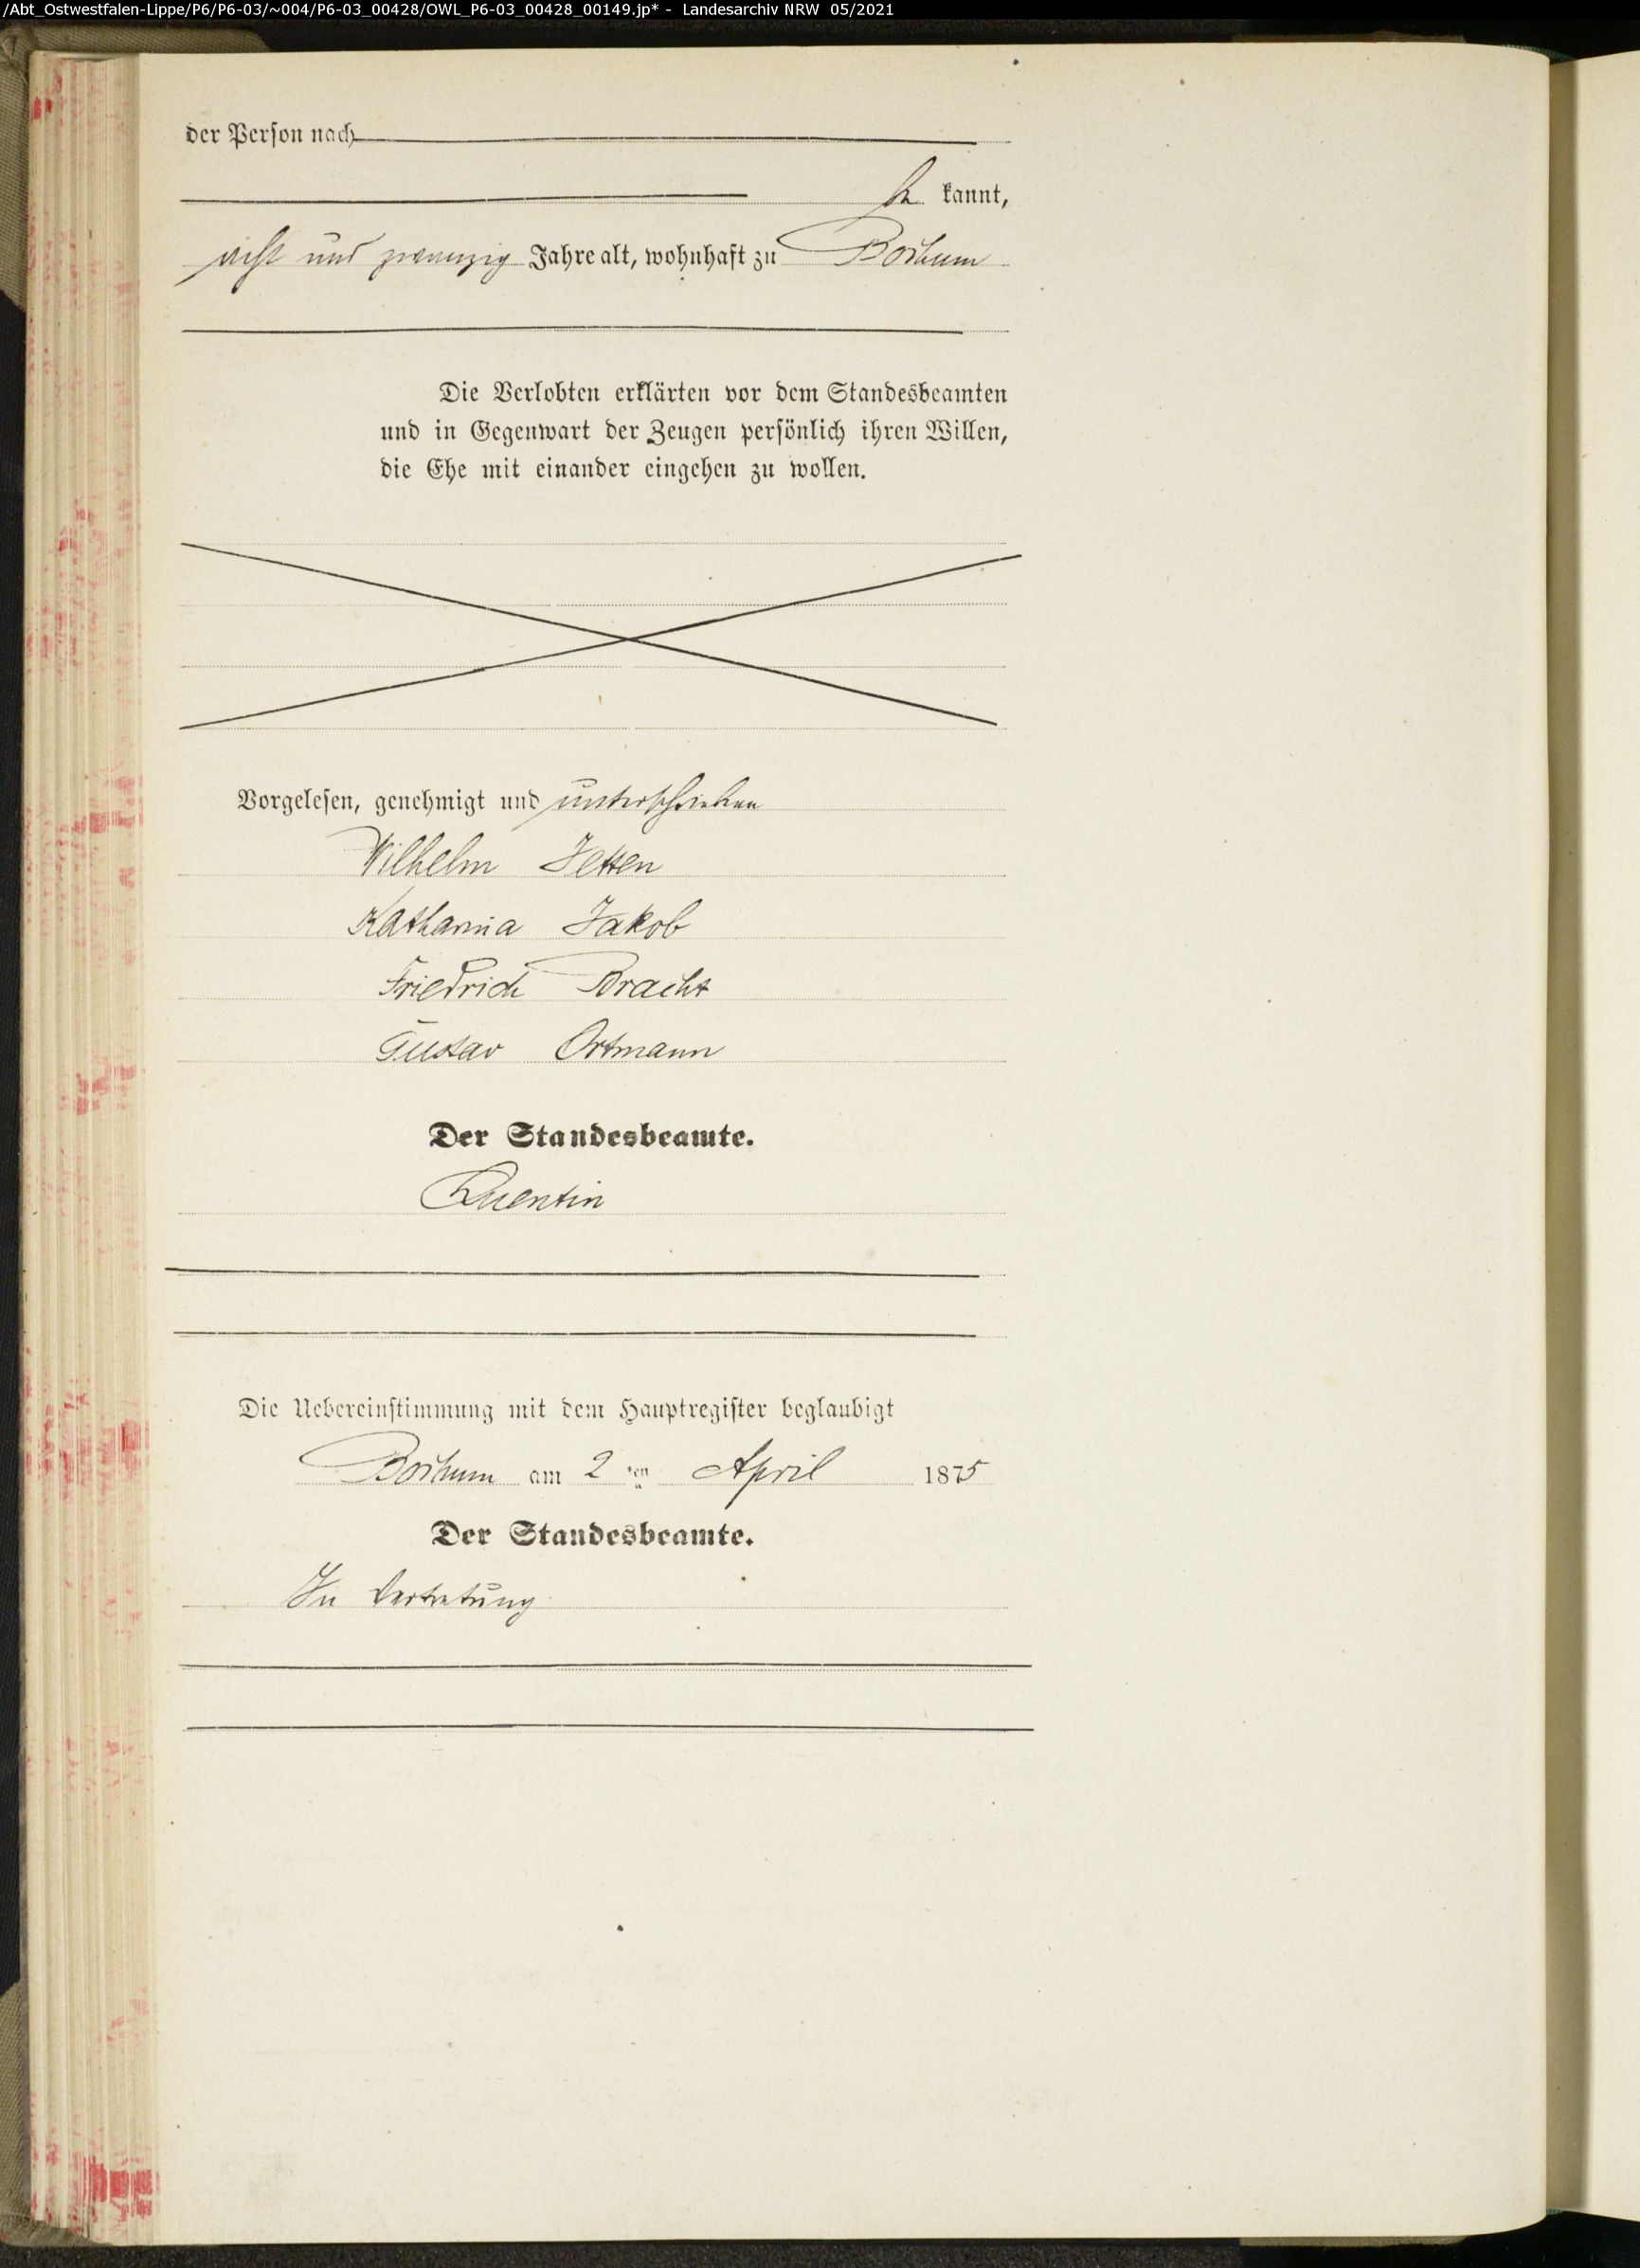 /Abt_Ostwestfalen-Lippe/P6/P6-03/~004/P6-03_00428/OWL_P6-03_00428_00149.jp* - Landesarchiv NRW 05/2021
der Person nach
be kannt,
acht und zwanzig Jahre alt, wohnhaft zu Bochum
Die Verlobten erklärten vor dem Standesbeamten
und in Gegenwart der Zeugen persönlich ihren Willen,
die Ehe mit einander eingehen zu wollen.
Vorgelesen, genehmigt und unterschrieben
Wilhelm Jetten
Katharina Jakob
Friedrich Bracht
Gustav Ortmann
Der Standesbeamte.
Quentin
Die Uebereinstimmung mit dem Hauptregister beglaubigt
Bochum am 2 ten April 1875
Der Standesbeamte.
In Vertretung